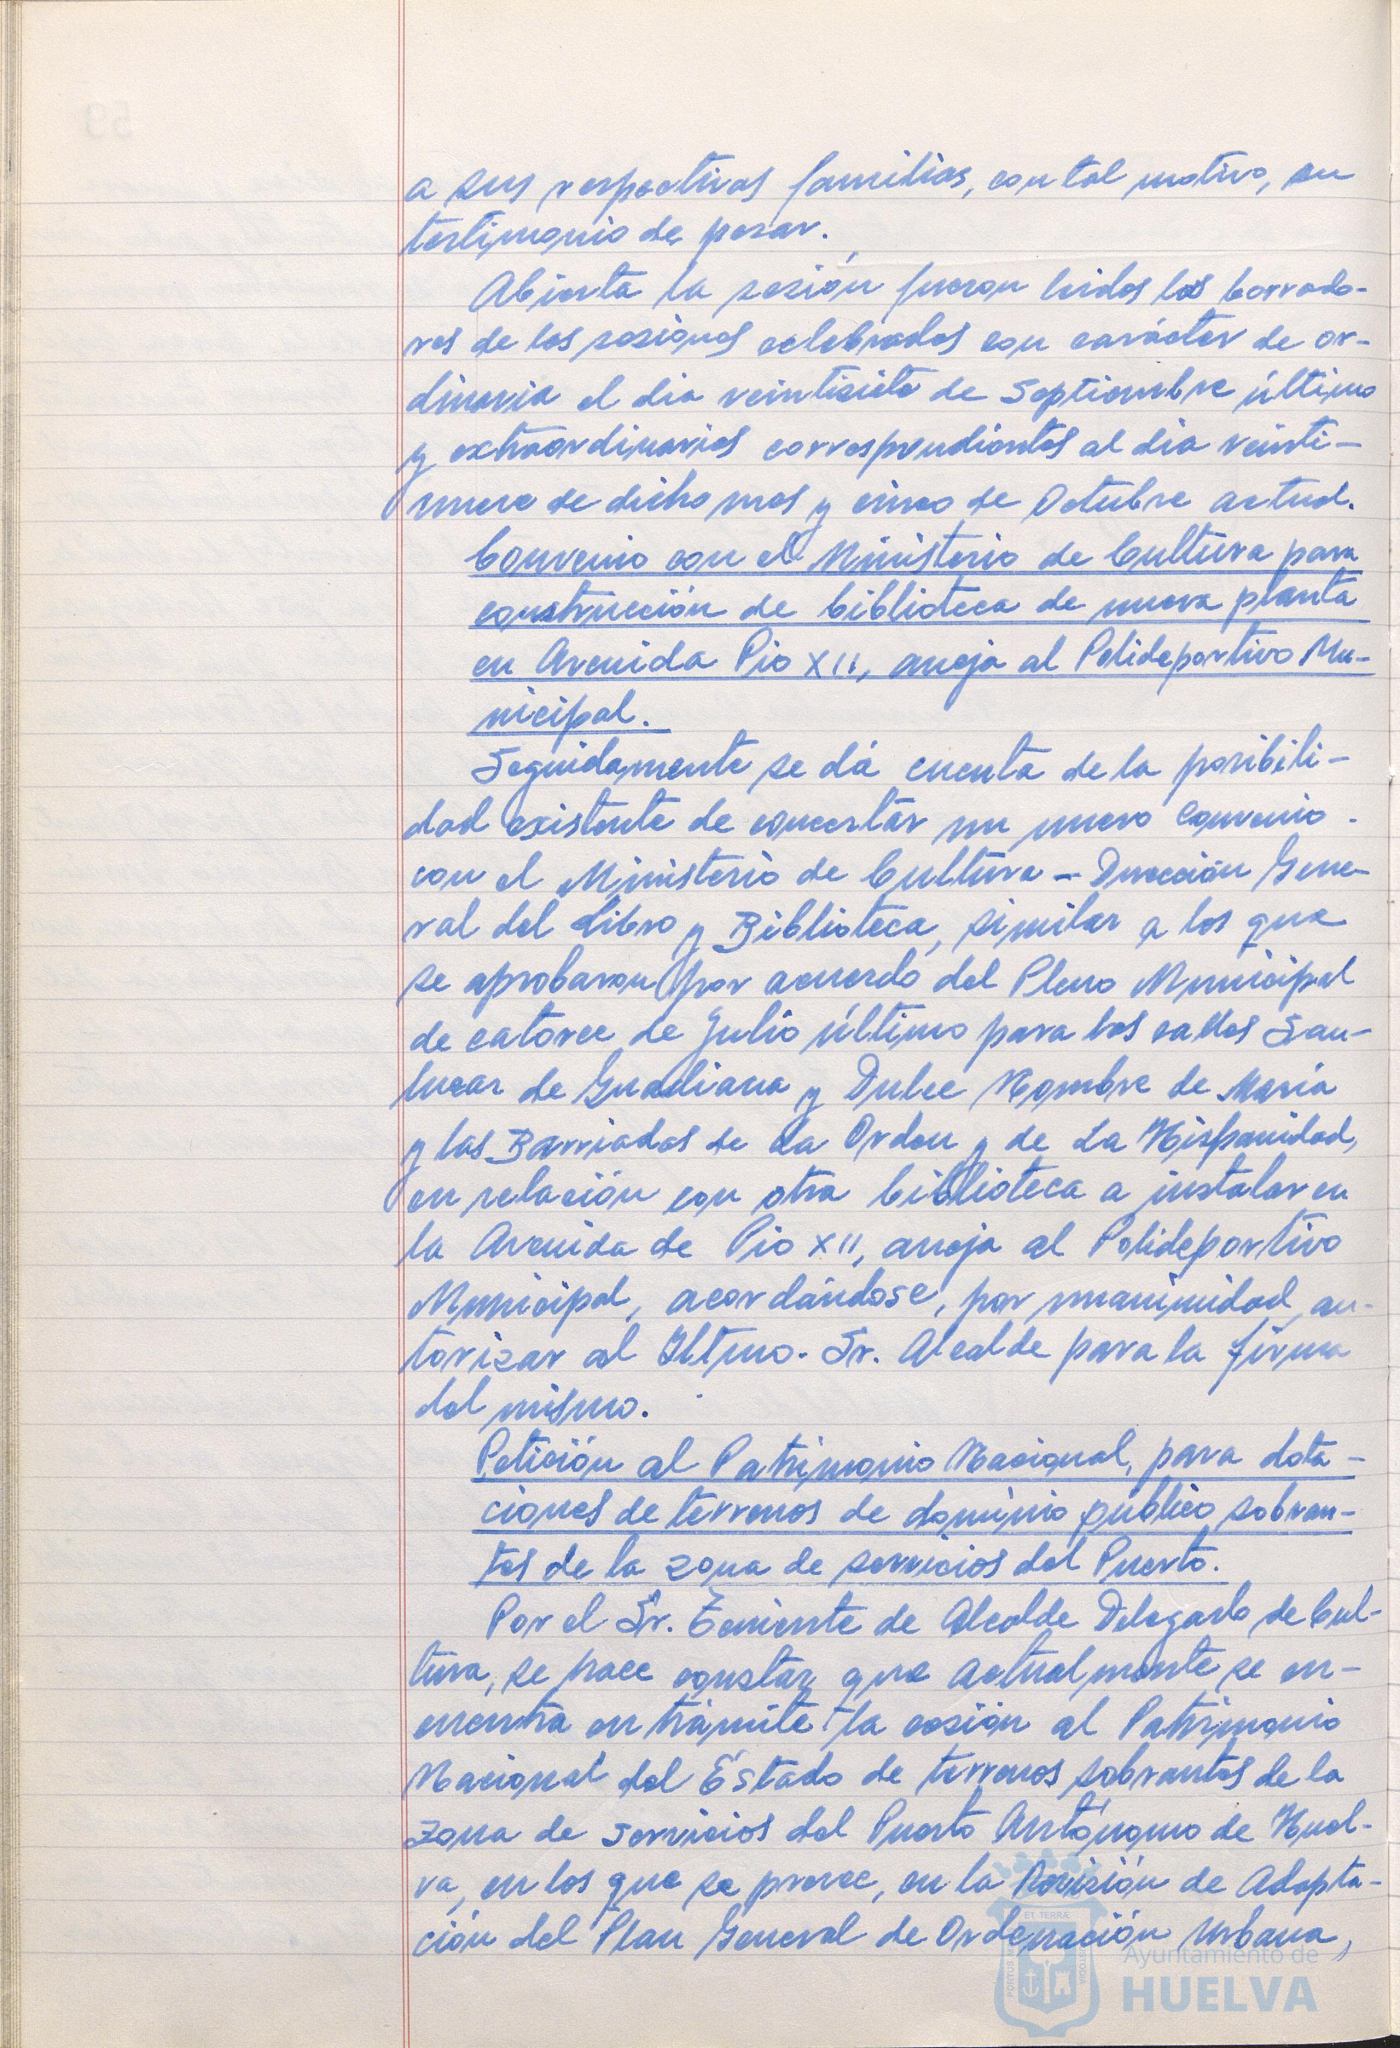 a sus respectivas familias, con tal motivo, su
testimonio de pesar.
Abierta la sesión fueron leidos los borrado-
res de las sesiones celebradas con carácter de or-
dinaria el dia veintisiete de Septiembre último
y extraordinarias correspondientes al dia veinti-
nueve de dicho mes y cinco de Octubre actual.
Convenio con el Ministerio de Cultura para
construcción de biblioteca de nueva planta
en Avenida Pio XII, aneja al Polideportivo Mu-
nicipal.
Seguidamente se dá cuenta de la posibili-
dad existente de concertar un nuevo Convenio
con el Ministerio de Cultura - Dirección Gene-
ral del Libro y Biblioteca, similar a los que
se aprobaron por acuerdo del Pleno Municipal
de catorce de Julio último para las calles San-
lucar de Guadiana y Dulce Nombre de María
y las Barriadas de La Orden y de La Hispanidad,
en relación con otra biblioteca a instalar en
la Avenida de Pio XII, aneja al Polideportivo
Municipal, acordándose, por unanimidad, au-
torizar al Iltmo. Sr. Alcalde para la firma
del mismo.
Petición al Patrimonio Nacional, para dota-
ciones de terrenos de dominio publico sobran-
tes de la zona de servicios del Puerto.
Por el Sr. Teniente de Alcalde Delegado de Cul-
tura, se hace constar que actualmente se en-
cuentra en trámite la cesión al Patrimonio
Nacional del Estado de terrenos sobrantes de la
Zona de Servicios del Puerto Autónomo de Huel-
va, en los que se prevee, en la Revisión de Adapta-
ción del Plan General de Ordenación Urbana,
Ayuntamiento de
HUELVA